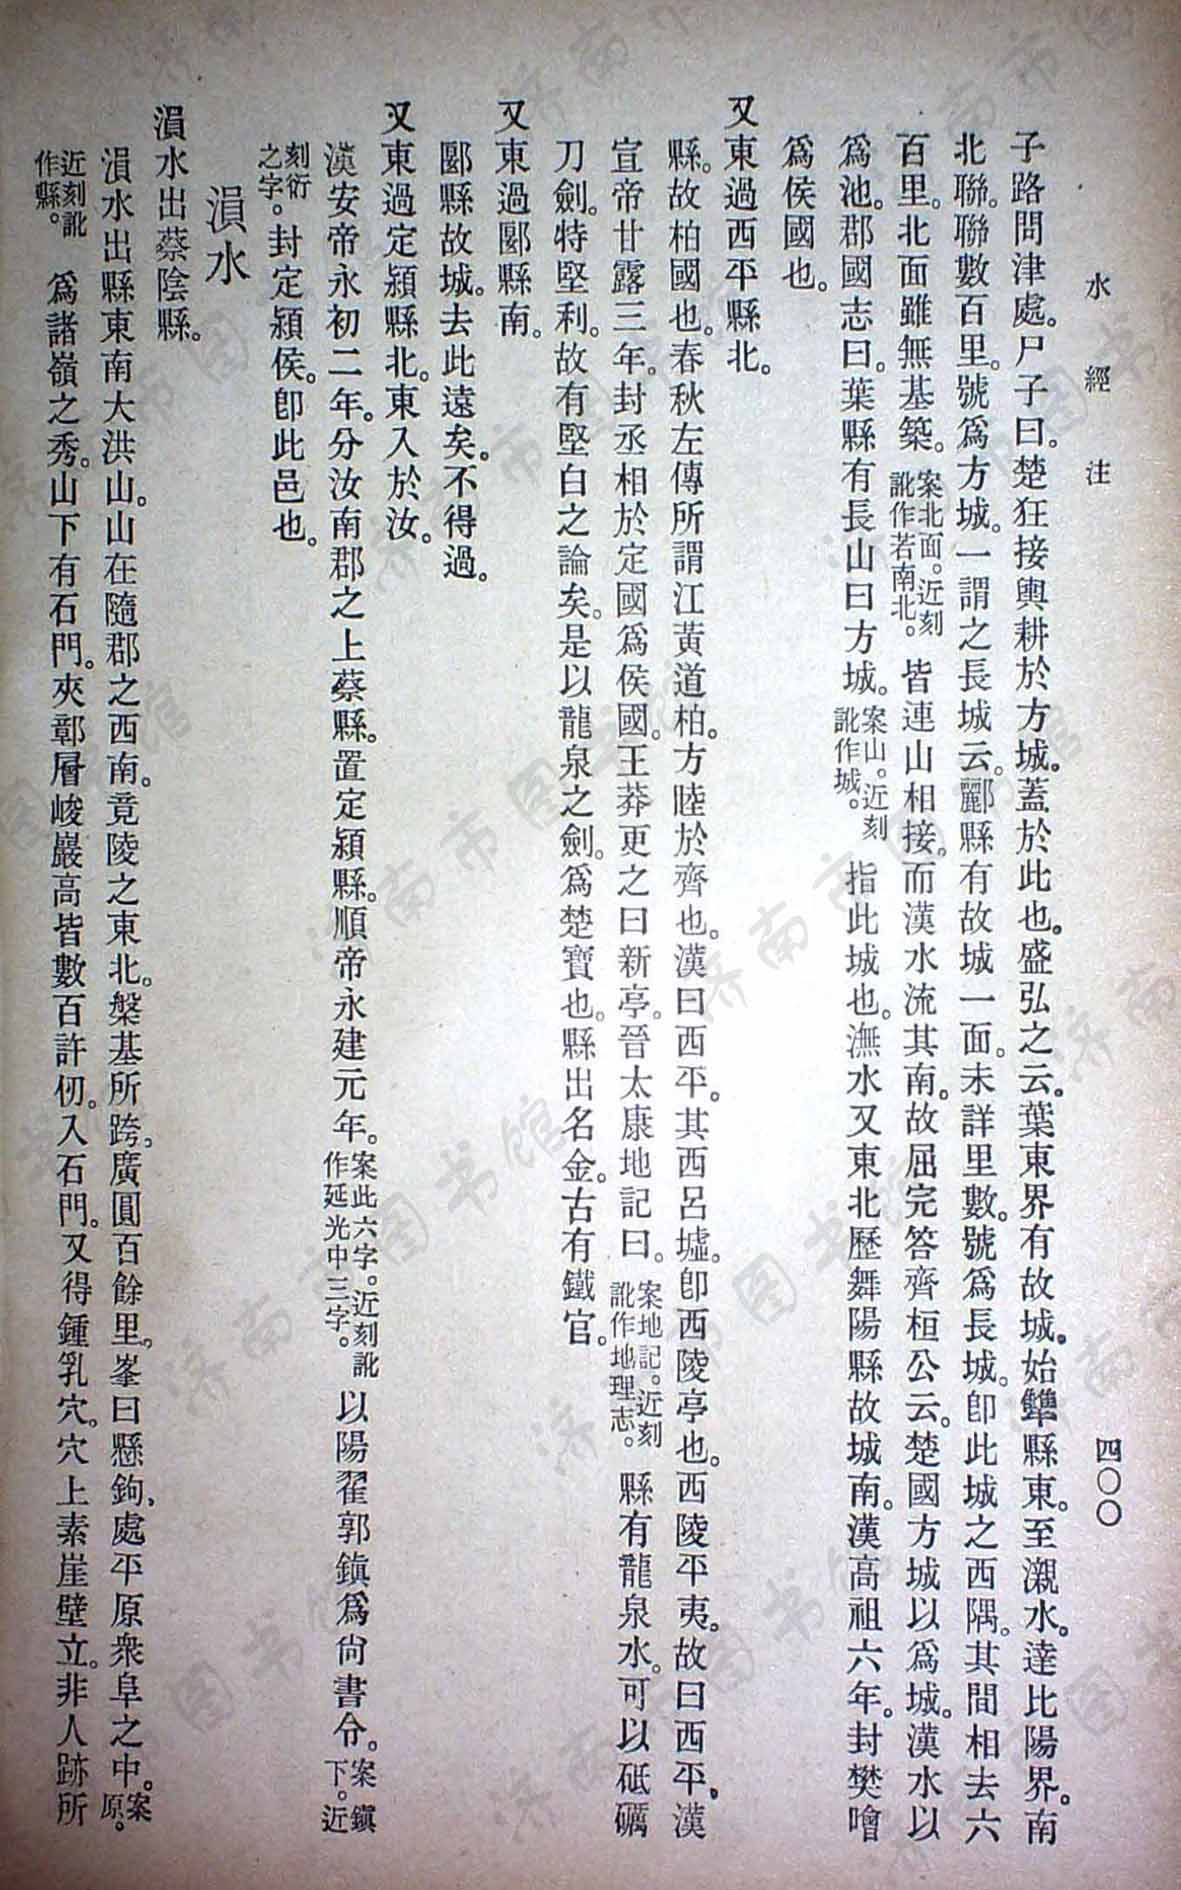 水經注
四〇〇
子路問津處。尸子曰。楚狂接輿耕於方城。蓋於此也。盛弘之云。葉東界有故城。始犨縣東。至瀙水。達比陽界。南
北聯。聯數百里。號爲方城。一謂之長城云。酈縣有故城一面。未詳里數。號爲長城。卽此城之西隅。其間相去六
百里。北面雖無基築。案北面。近刻訛作若南北。皆連山相接。而漢水流其南。故屈完答齊桓公云。楚國方城以爲城。漢水以
爲池。郡國志曰。葉縣有長山曰方城。案山。近刻訛作城。指此城也。潕水又東北歷舞陽縣故城南。漢高祖六年。封樊噲
爲侯國也。
又東過西平縣北。
縣。故柏國也。春秋左傳所謂江黃道柏。方睦於齊也。漢曰西平。其西呂墟。卽西陵亭也。西陵平夷。故曰西平。漢
宣帝甘露三年。封丞相於定國爲侯國。王莽更之曰新亭。晉太康地記曰。案地記。近刻訛作地理志。縣有龍泉水。可以砥礪
刀劍。特堅利。故有堅白之論矣。是以龍泉之劍。爲楚寶也。縣出名金。古有鐵官。
又東過郾縣南。
郾縣故城。去此遠矣。不得過。
又東過定潁縣北。東入於汝。
漢安帝永初二年。分汝南郡之上蔡縣。置定潁縣。順帝永建元年。案此六字。近刻訛作延光中三字。以陽翟郭鎭爲尙書令。案鎭下。近
刻衍之字。封定潁侯。卽此邑也。
溳水
溳水出蔡陰縣。
溳水出縣東南大洪山。山在隨郡之西南。竟陵之東北。槃基所跨。廣圓百餘里。峯曰懸鉤。處平原衆阜之中。案原。
近刻訛作縣。爲諸嶺之秀。山下有石門。夾鄣層峻。巖高皆數百許仞。入石門。又得鍾乳穴。穴上素崖壁立。非人跡所